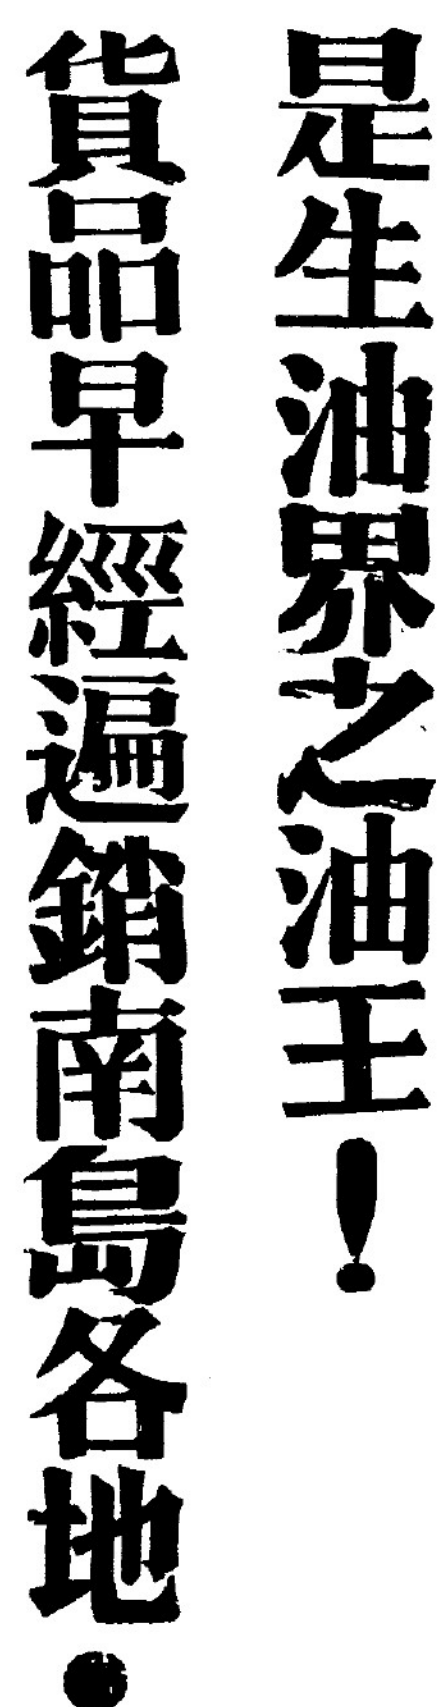 是生油界之油王！
貨品早經遍銷南島各地●